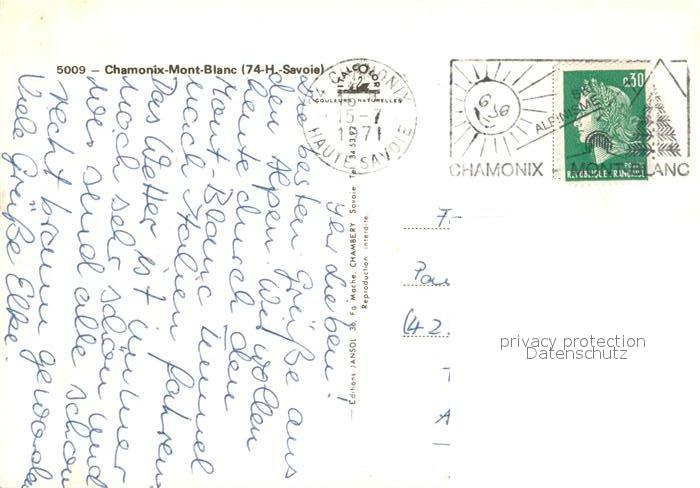 5009 – Chamonix-Mont-Blanc (74-H.-Savoie)
ITALCOLOR
COULEURS NATURELLES
CHAMONIX
15-7
1971
HAUTE-SAVOIE
SKI
ALPINISME
0,30
POSTES
REPUBLIQUE FRANÇAISE
CHAMONIX MONT-BLANC
Ihr Lieben!
Die besten Grüße aus
den Alpen. Wir wollen
heute durch den
Mont-Blanc Tunnel
nach Italien fahren.
Das Wetter ist immer
noch sehr schön und
wir sind alle schon
recht braun geworden.
Viele Grüße Elke.
Editions JANSOL 36, Fg Mache, CHAMBERY Savoie Tel. 34.53.92
Reproduction interdite
7-
(42.
T
A
privacy protection
Datenschutz